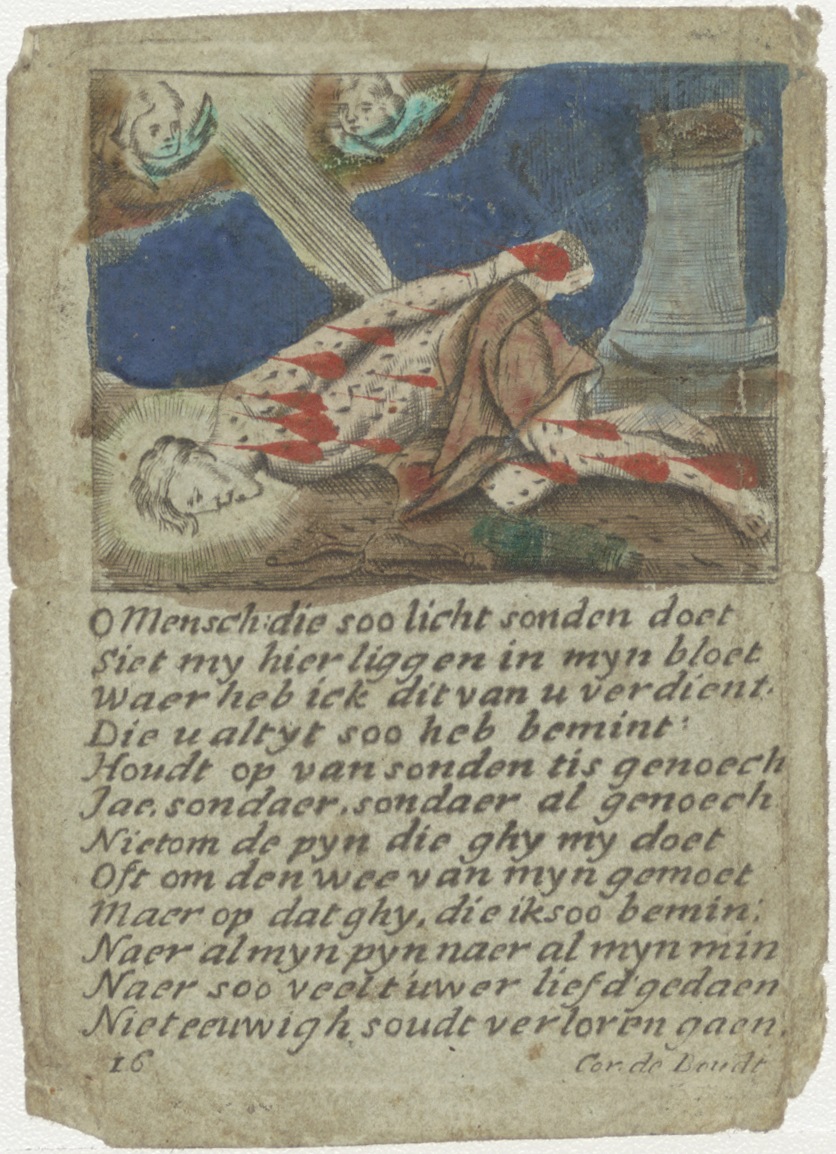 O Mensch die soo licht sonden doet
Siet my hier liggen in myn bloet
Waer heb ick dit van u verdient.
Die u altyt soo heb bemint:
Houdt op van sonden tis genoech
Jae, sondaer, sondaer al genoech
Niet om de pyn die ghy my doet
Oft om den wee van myn gemoet
Maer op dat ghy, die ik soo bemin;
Naer al myn pyn naer al myn min
Naer soo veel t'uwer liefd' gedaen
Niet eeuwigh soudt verloren gaen.
16
Cor. de Boudt